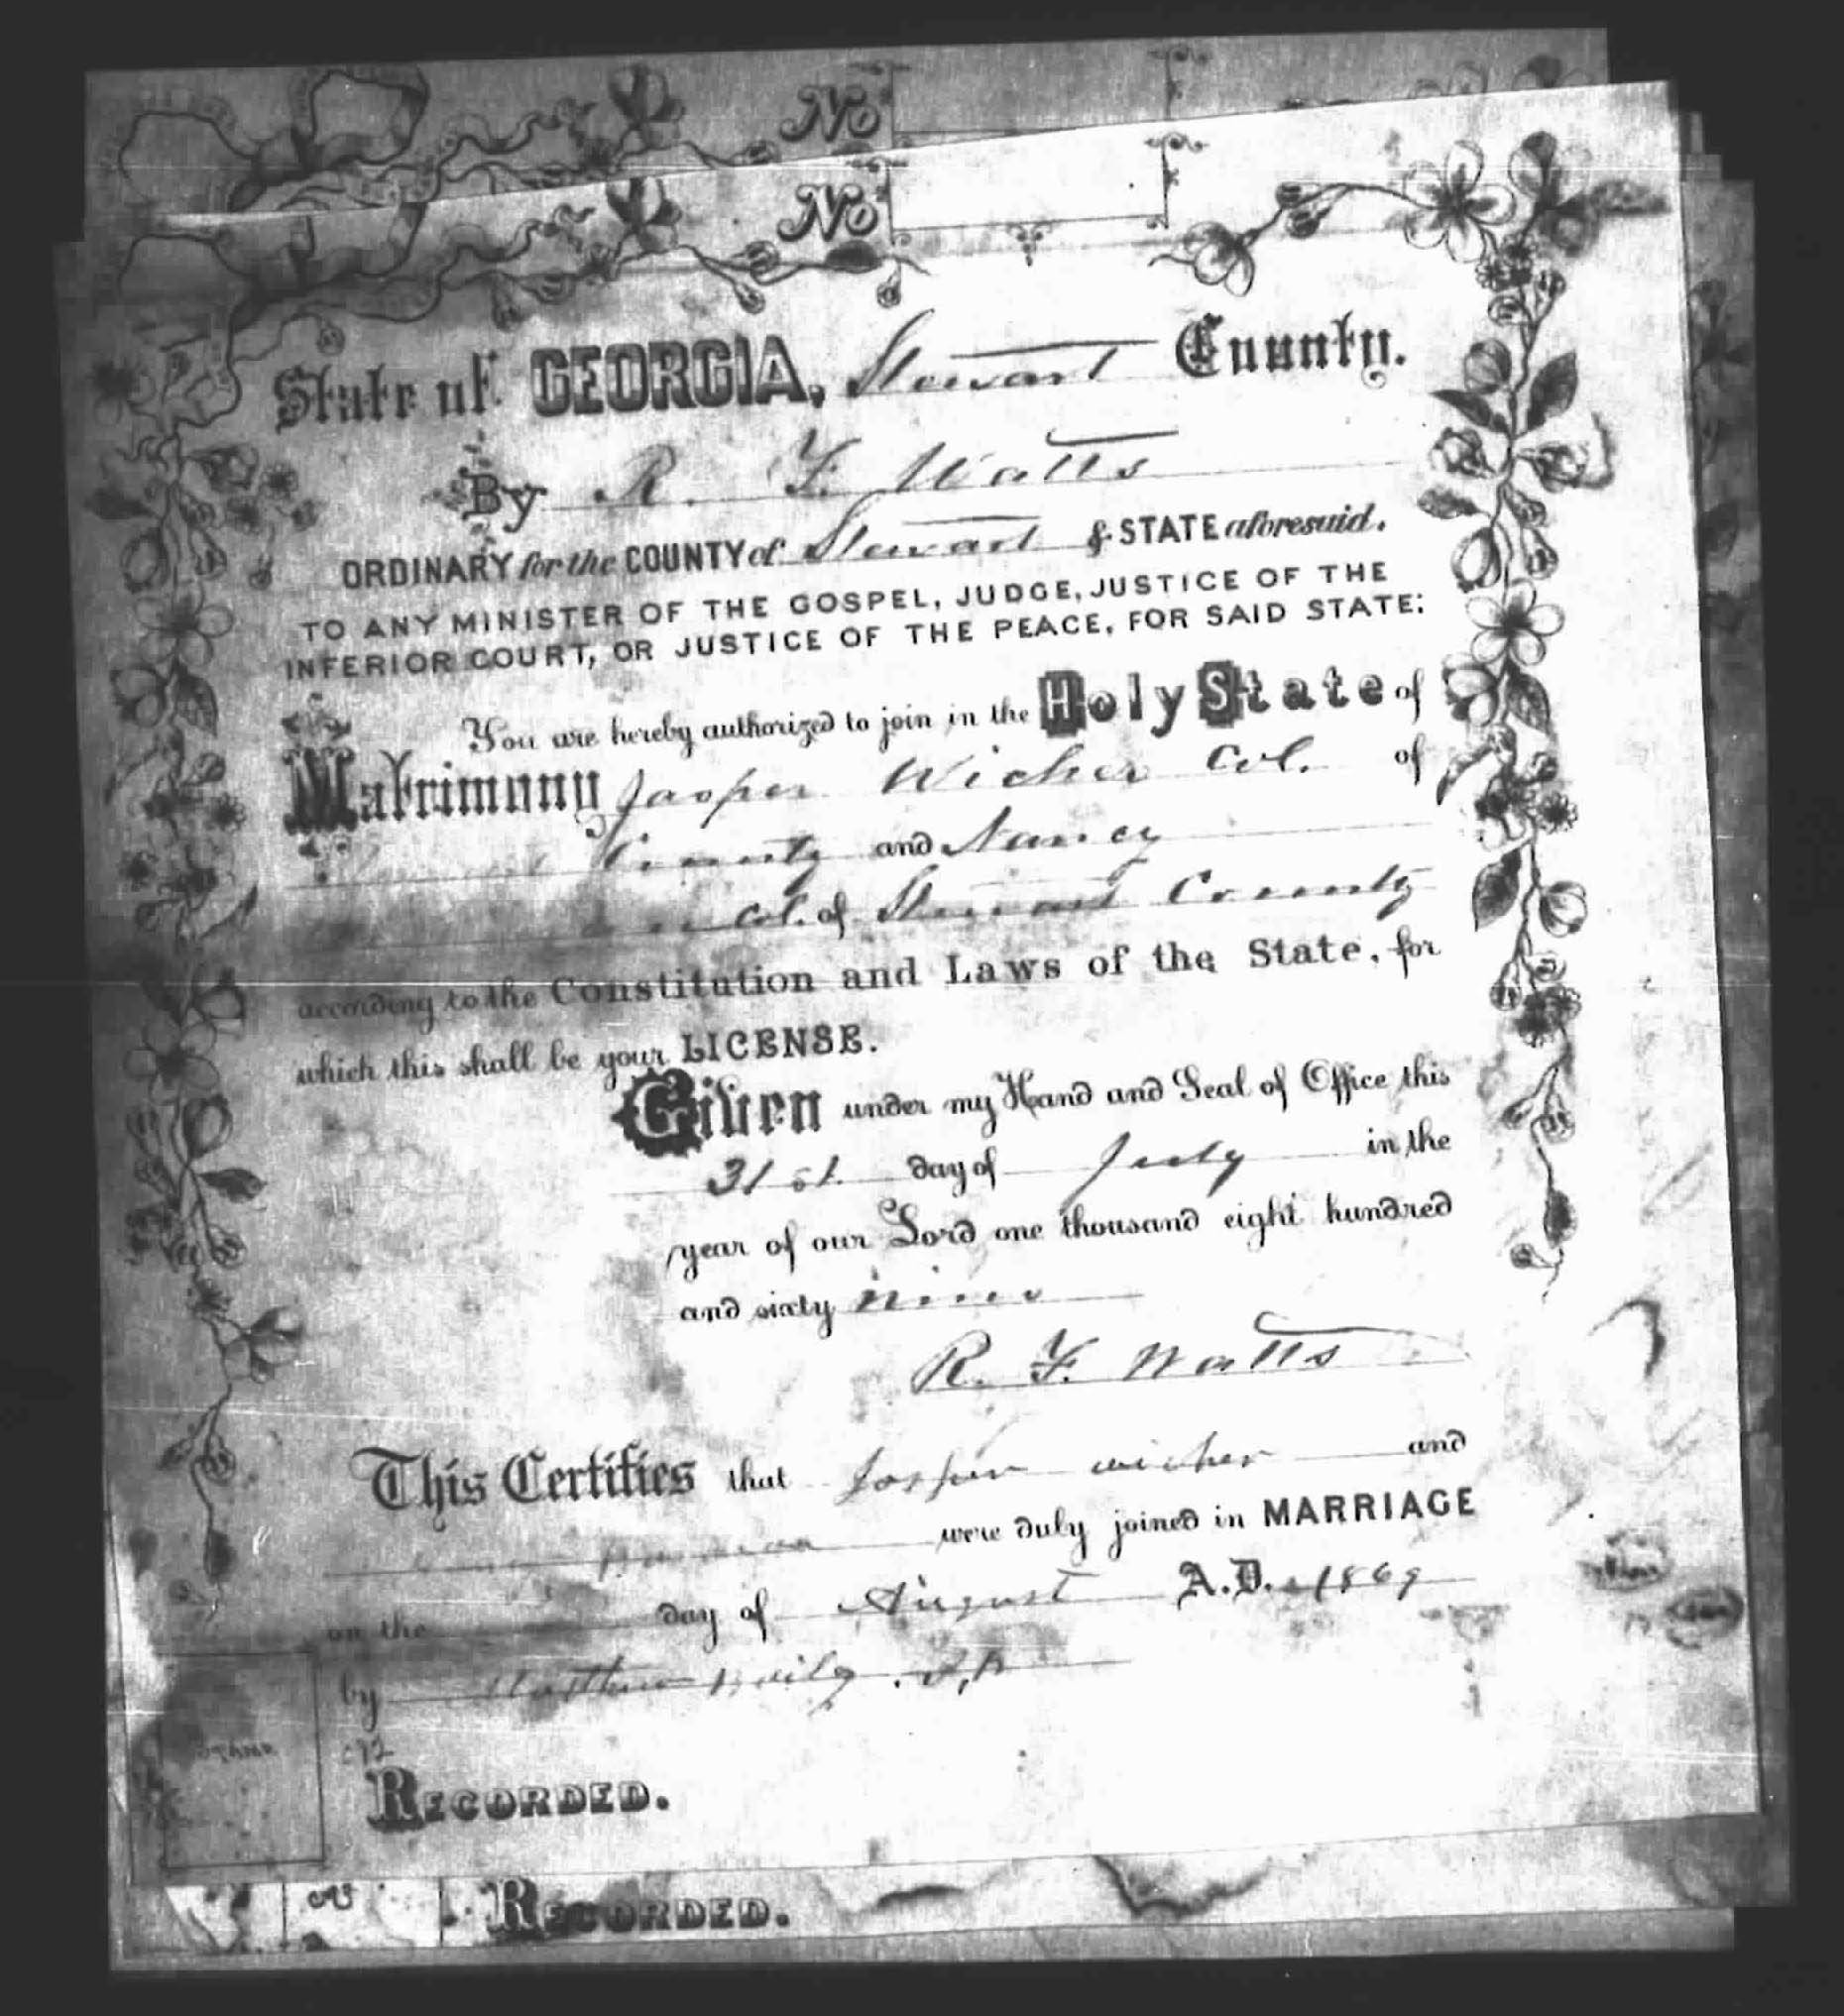 No
No
State of GEORGIA, Stewart County.
By R. F. Watts
ORDINARY for the COUNTY of Stewart & STATE aforesaid.
TO ANY MINISTER OF THE GOSPEL, JUDGE, JUSTICE OF THE
INFERIOR COURT, OR JUSTICE OF THE PEACE, FOR SAID STATE:
You are hereby authorized to join in the Holy State of
Matrimony Jasper Wicher Col. of
County and Nancy
Col. of Stewart County
according to the Constitution and Laws of the State, for
which this shall be your LICENSE.
Given under my Hand and Seal of Office this
31st day of July in the
year of our Lord one thousand eight hundred
and sixty nine
R. F. Watts
This Certifies that Jasper wicher and
were duly joined in MARRIAGE
on the day of August A.D. 1869
by
STAMP
RECORDED.
RECORDED.